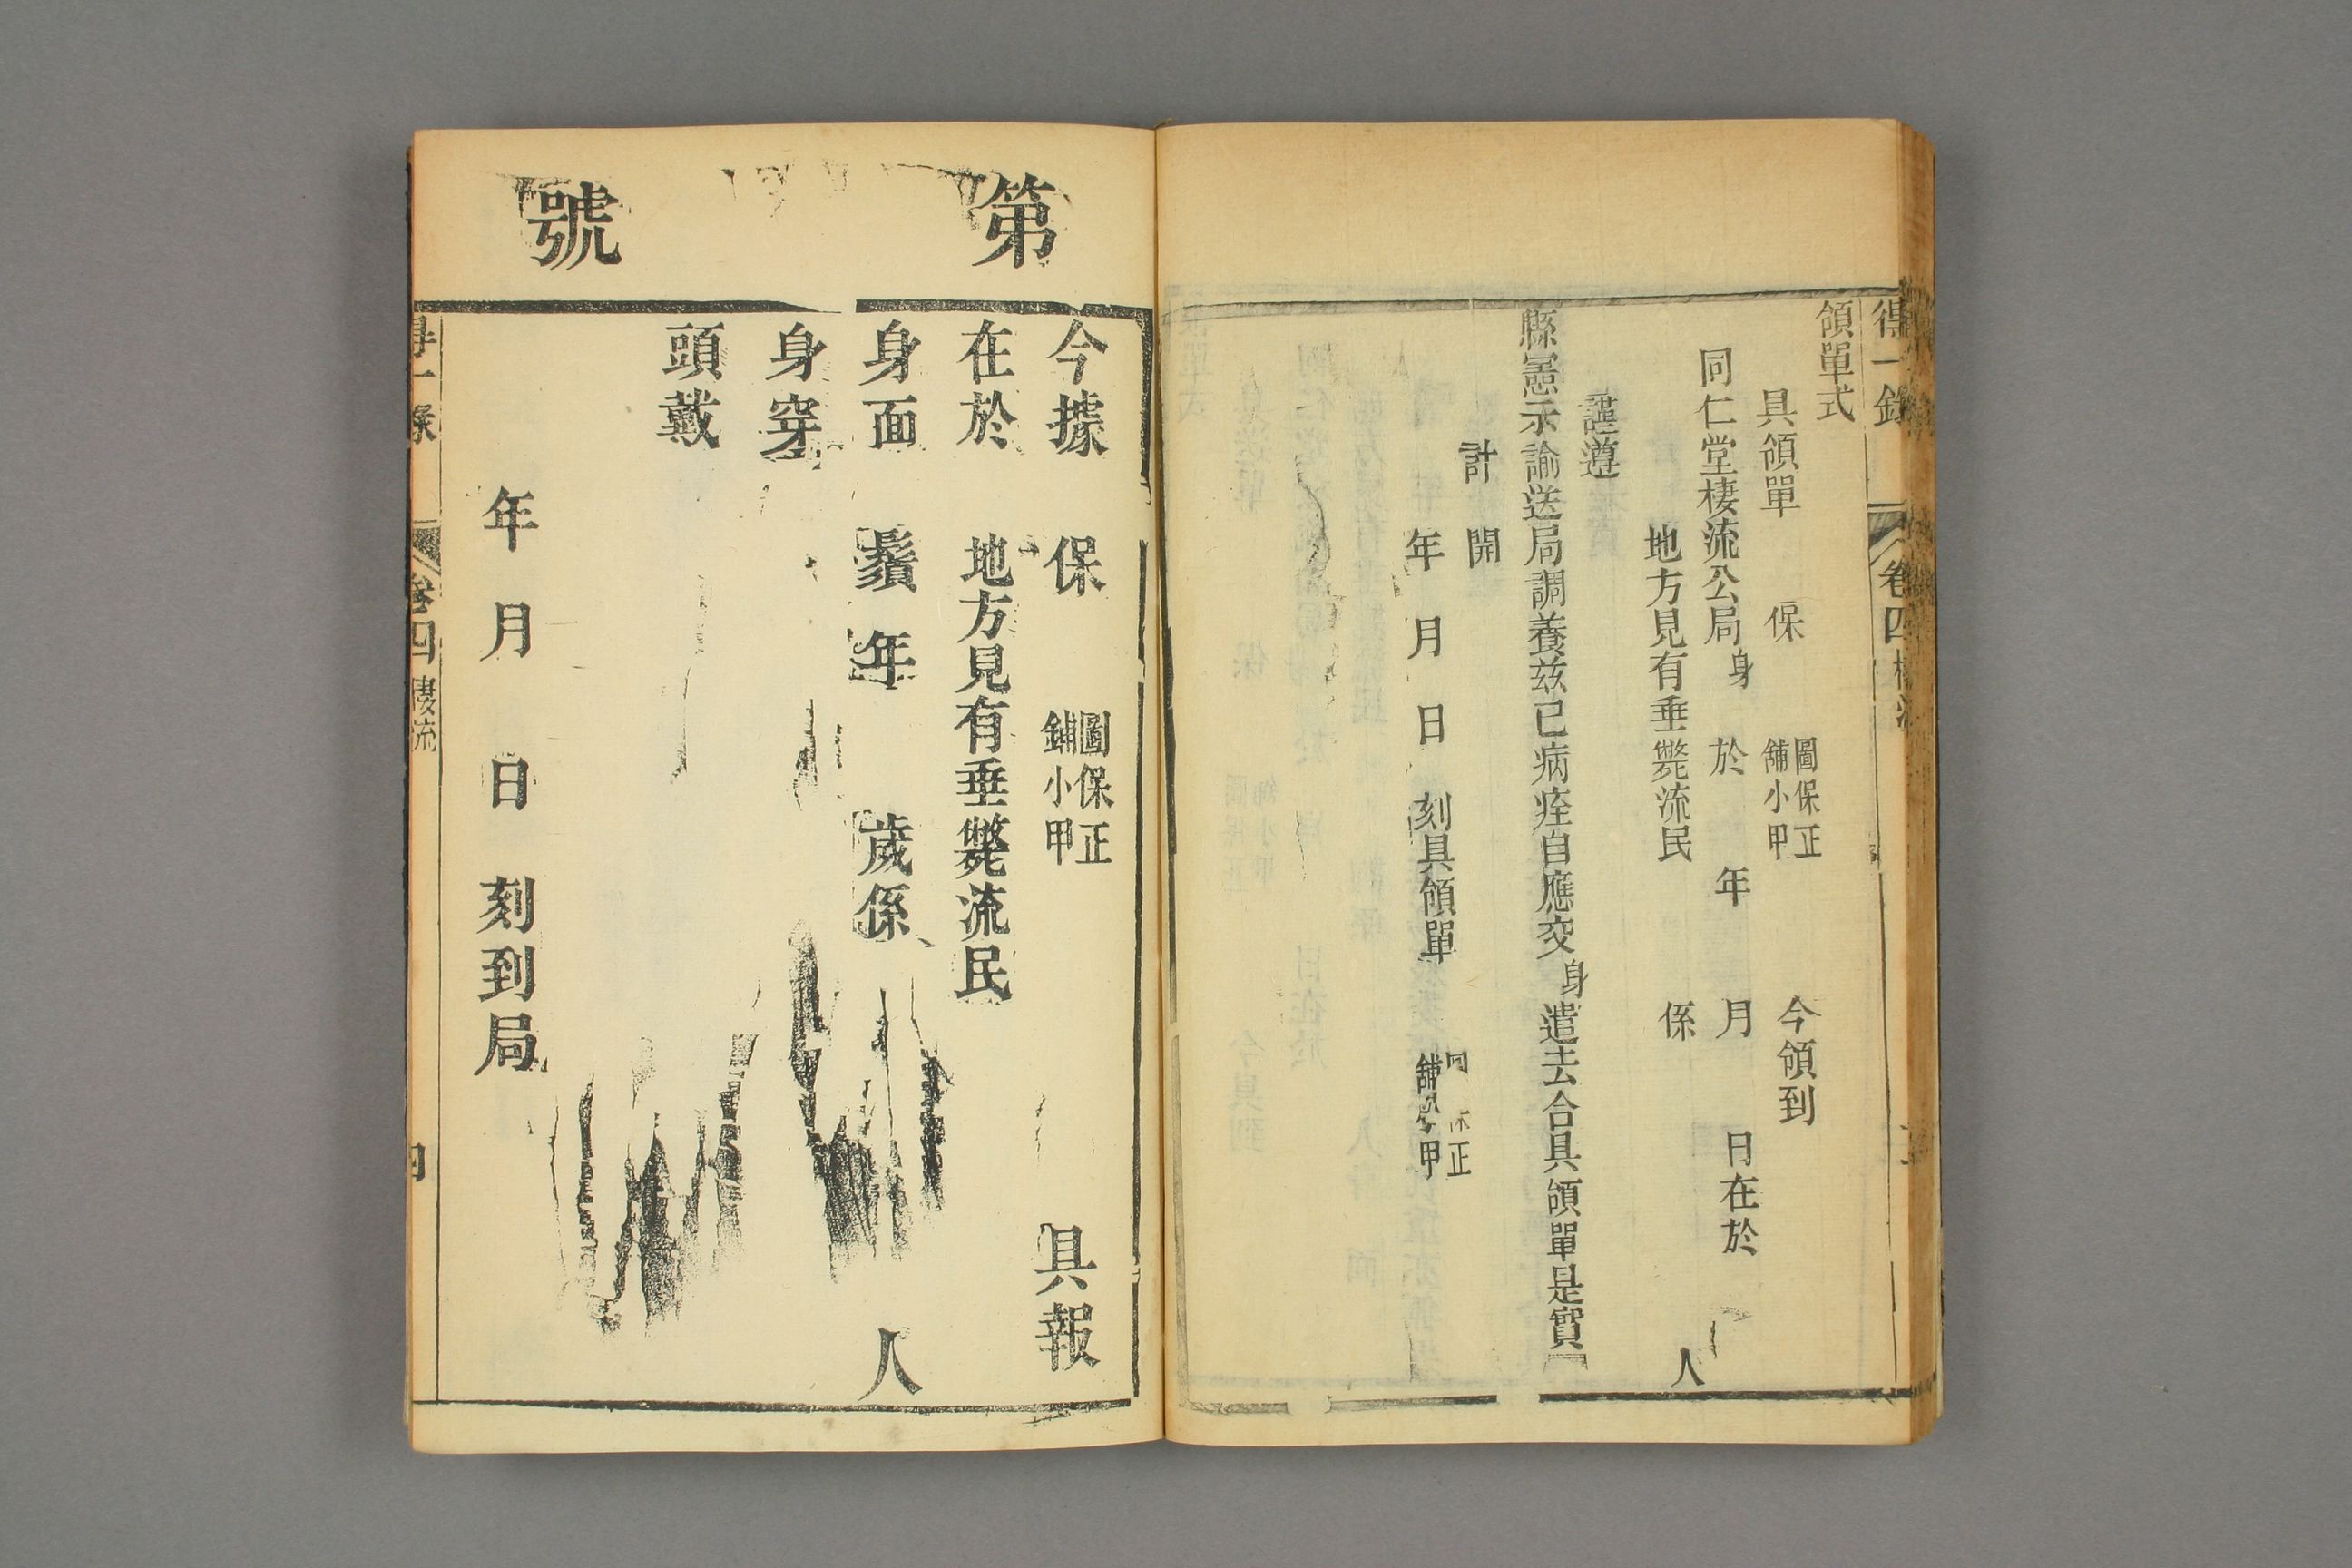 得一錄　卷四
領單式
具領單　保　圖保正舖小甲　今領到
同仁堂棲流公局身　於　年　月　日在於
地方見有垂斃流民　係　人
謹遵
縣憲示諭送局調養茲已病痊自應交身遣去合具領單是實
計　開
年　月　日　刻具領單　保正舖小甲
第　號
今據　保　圖保正舖小甲　具報
在於　地方見有垂斃流民
身面　鬚　年　歲係　人
身穿
頭戴
年　月　日　刻到局
卷四　棲流　四